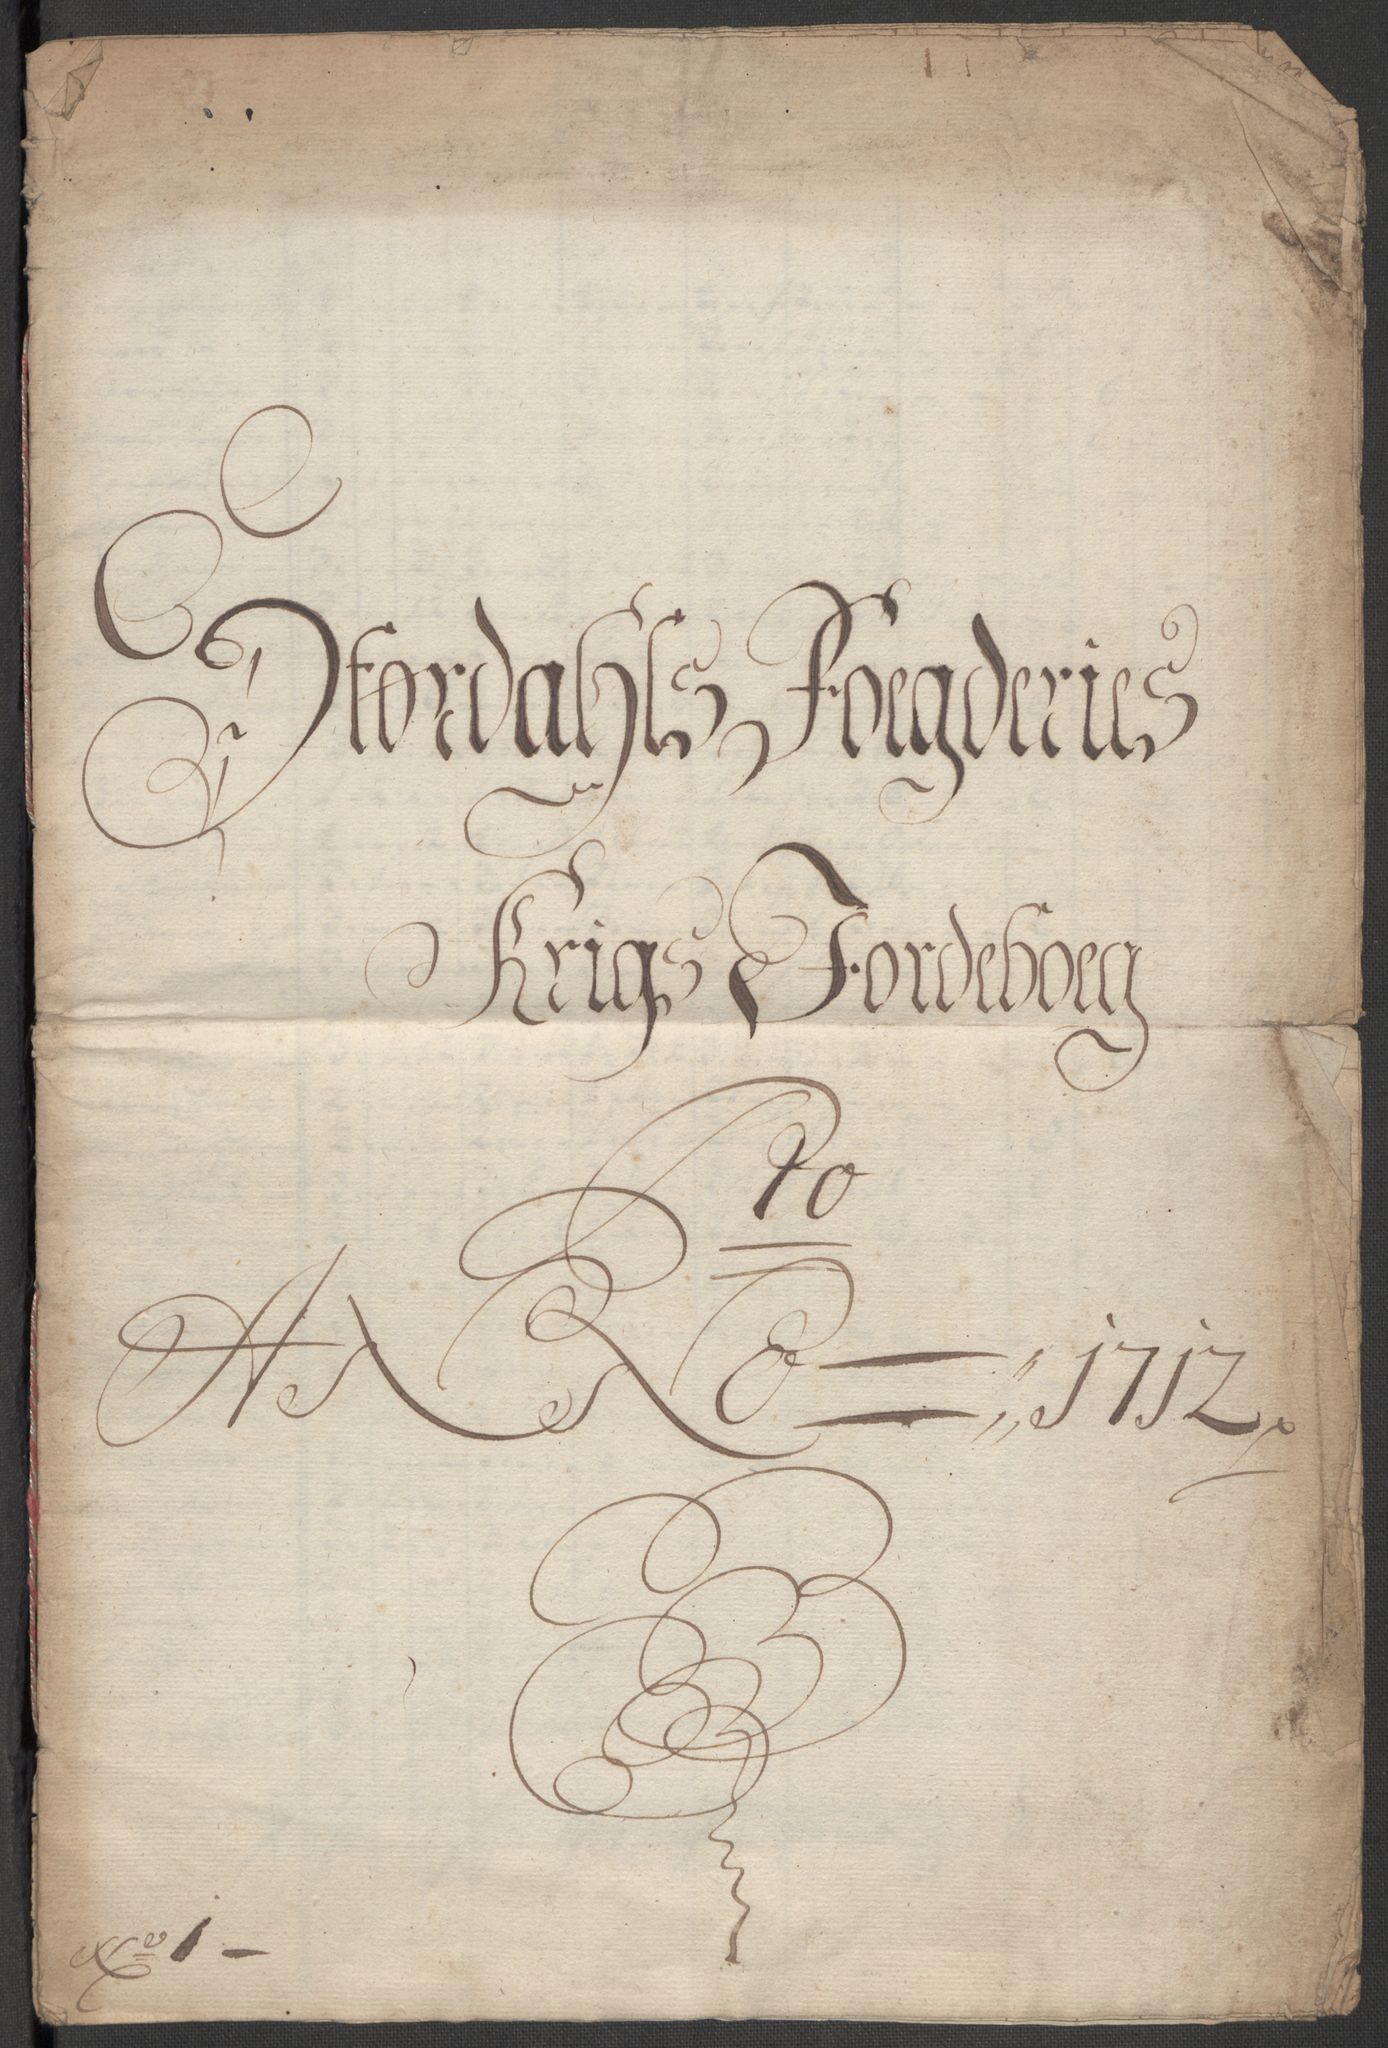 Stordahls Foegderies
Krigs Jordeboeg
Pro
A͞o 1712
No 1